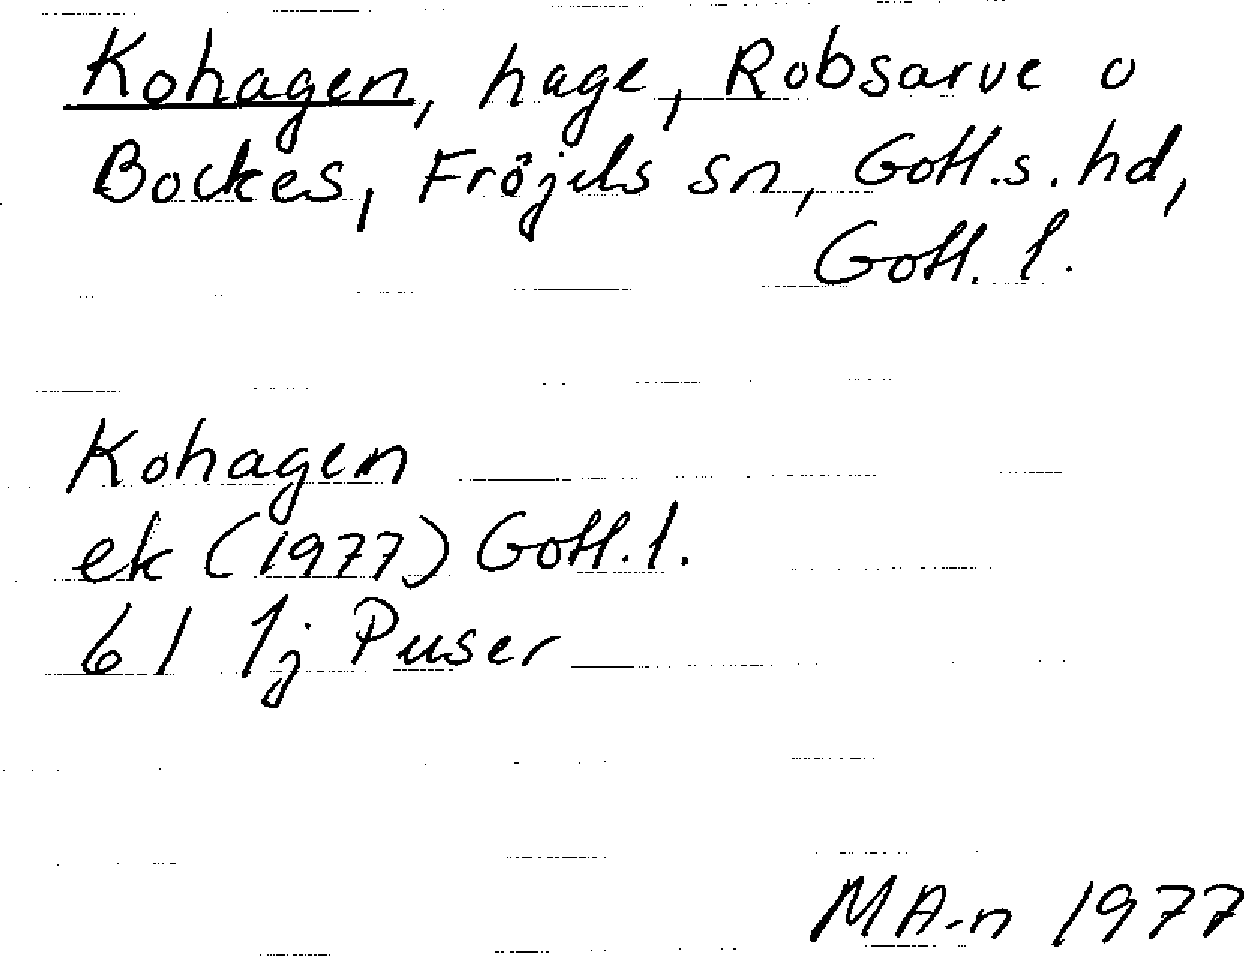 Kohagen, hage, Robsarve o
Bockes, Fröjels sn, Gotl.s. hd,
Gotl. l.
Kohagen
ek (1977) Gotl. l.
6 I 1j Puser
MA-n 1977